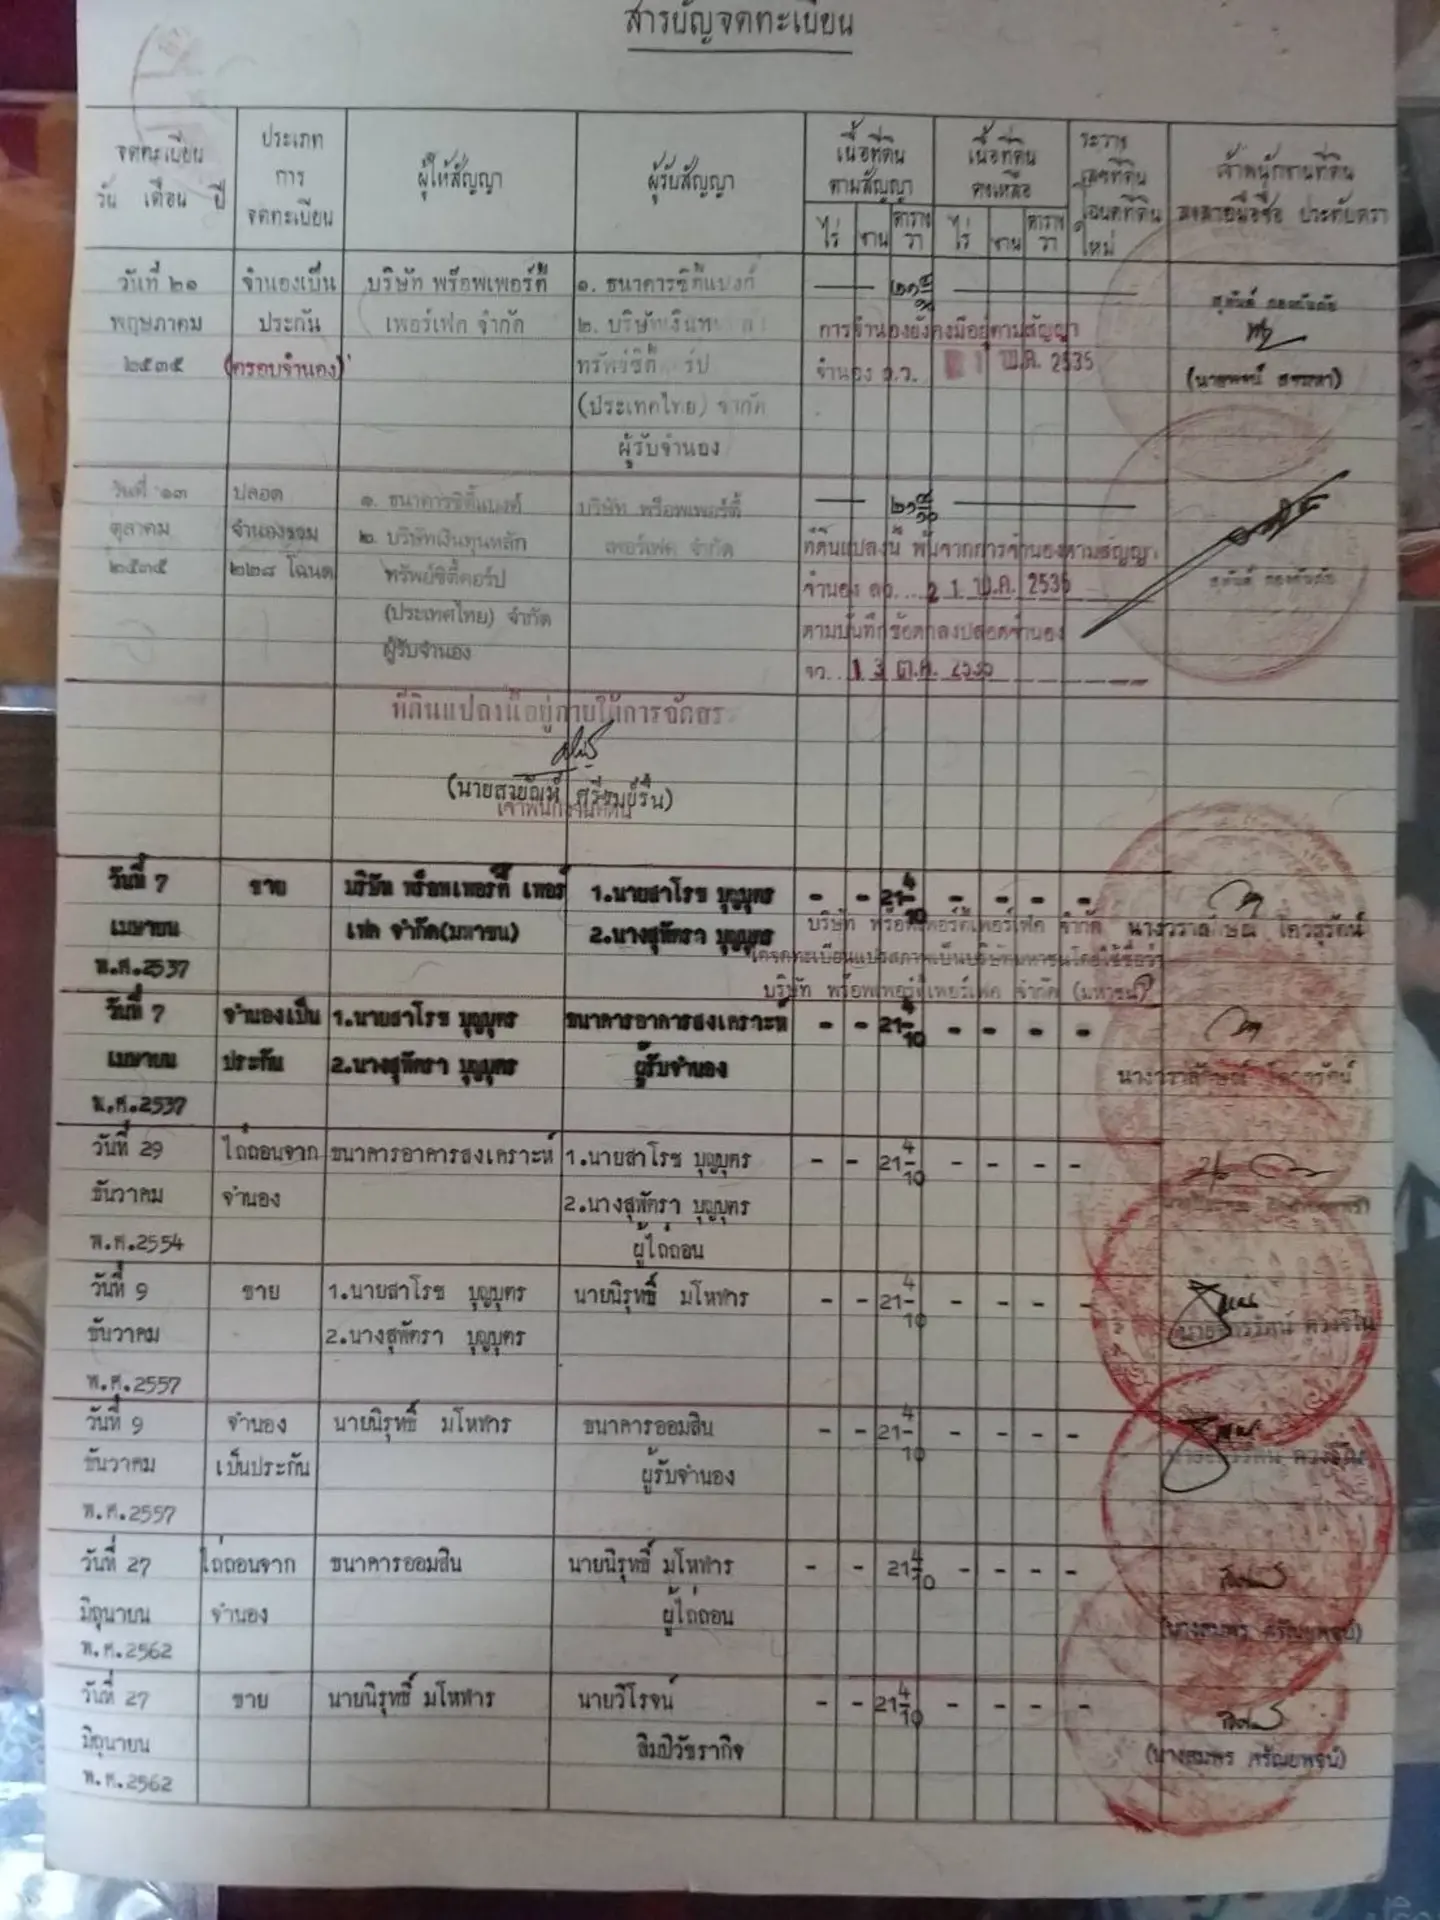 สารบัญจดทะเบียน
จดทะเบียน
วัน เดือน ปี
ประเภท
การ
จดทะเบียน
ผู้ให้สัญญา
ผู้รับสัญญา
เนื้อที่ดิน
ตามสัญญา
ไร่ งาน ตาราง
วา
เนื้อที่ดิน
คงเหลือ
ไร่ งาน ตาราง
วา
ระวาง
เลขที่ดิน
โฉนดที่ดิน
ใหม่
เจ้าพนักงานที่ดิน
ลงลายมือชื่อ ประทับตรา
วันที่ ๒๑ จำนองเป็น บริษัท พร็อพเพอร์ตี้ ๑. ธนาคารซิตี้แบงก์
พฤษภาคม ประกัน เพอร์เฟค จำกัด ๒. บริษัทเงินทุน
การจำนองยังคงมีอยู่ตามสัญญา
๒๕๓๕ (ครอบจำนอง) ทรัพย์ซิตี้
จำนอง ล.ว. 1 พ.ค. 2535
(นายพจน์
(ประเทศไทย) จำกัด
ผู้รับจำนอง
วันที่ ๑๓ ปลอด ๑. ธนาคารซิตี้แบงก์ บริษัท พร็อพเพอร์ตี้
ตุลาคม จำนองรวม ๒. บริษัทเงินทุนหลัก เพอร์เฟค จำกัด
ที่ดินแปลงนี้ พ้นจากการจำนองตามสัญญา
๒๕๓๕ ๒๒๘ โฉนด ทรัพย์ซิตี้คอร์ป
จำนอง ลว... 21 พ.ค. 2535
(ประเทศไทย) จำกัด
ตามบันทึกข้อตกลงปลอดจำนอง
ผู้รับจำนอง
ลว.. 13 ต.ค. 2535
ที่ดินแปลงนี้อยู่ภายใต้การจัดสร
เจ้าพนักงานที่ดิน
วันที่ 7 ขาย บริษัท พร็อพเพอร์ตี้ เพอร์ 1.นายสาโรช บุญบุตร - - 21 4/10 - - - -
เมษายน เฟค จำกัด(มหาชน) 2.นางสุพัตรา บุญบุตร
บริษัท พร็อพเพอร์ตี้เพอร์เฟค จำกัด
นางวราลักษณ์ โควสุรัตน์
พ.ศ.2537
ได้จดทะเบียนแปรสภาพเป็นบริษัทมหาชนโดยใช้ชื่อว่า
บริษัท พร็อพเพอร์ตี้เพอร์เฟค จำกัด (มหาชน)
วันที่ 7 จำนองเป็น 1.นายสาโรช บุญบุตร ธนาคารอาคารสงเคราะห์ - - 21 4/10 - - - -
เมษายน ประกัน 2.นางสุพัตรา บุญบุตร ผู้รับจำนอง
นางวราลักษณ์ โควสุรัตน์
พ.ศ.2537
วันที่ 29 ไถ่ถอนจาก ธนาคารอาคารสงเคราะห์ 1.นายสาโรช บุญบุตร - - 21 4/10 - - - -
ธันวาคม จำนอง 2.นางสุพัตรา บุญบุตร
พ.ศ.2554 ผู้ไถ่ถอน
วันที่ 9 ขาย 1.นายสาโรช บุญบุตร นายนิรุทธิ์ มโหฬาร - - 21 4/10 - - - -
ธันวาคม 2.นางสุพัตรา บุญบุตร
พ.ศ.2557
วันที่ 9 จำนอง นายนิรุทธิ์ มโหฬาร ธนาคารออมสิน - - 21 4/10 - - - -
ธันวาคม เป็นประกัน ผู้รับจำนอง
พ.ศ.2557
วันที่ 27 ไถ่ถอนจาก ธนาคารออมสิน นายนิรุทธิ์ มโหฬาร - - 21 4/10 - - - -
มิถุนายน จำนอง ผู้ไถ่ถอน
(นางสมพร ศรัณยพจน์)
พ.ศ.2562
วันที่ 27 ขาย นายนิรุทธิ์ มโหฬาร นายวิโรจน์ - - 21 4/10 - - - -
มิถุนายน ลิมปิวัชรากิจ
(นางสมพร ศรัณยพจน์)
พ.ศ.2562